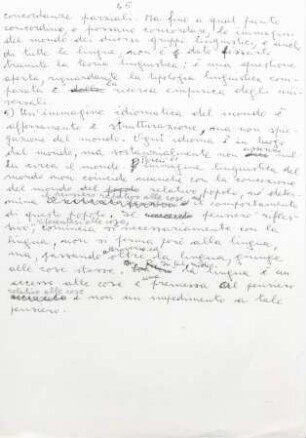 65
concordanze parziali. Ma fino a qual punto
concordino, o possano concordare, le immagini
del mondo dei diversi gruppi linguistici, o anche
di tutte le lingue, non è dato fissarlo
tramite la teoria linguistica; è una questione
aperta, riguardante la tipologia linguistica com-
parata e la ricerca empirica degli uni-
versali.
c) Un'immagine idiomatica del mondo è
afferramento e strutturazione, ma non spie-
gazione del mondo. Ogni idioma è in luogo
del mondo, ma sostanzialmente non
la crea il mondo. Quindi l'immagine linguistica del
mondo non coincide neanche con la concezione
del mondo del relativo popolo, né deter-
mina il comportamento
di questo popolo. Il pensiero rifles-
relativo alle cose
sivo, comincia sì necessariamente con la
lingua, non si ferma però alla lingua,
ma, passando oltre la lingua, giunge
alle cose stesse. la lingua è un
accesso alle cose e premessa del pensiero
relativo alle cose
e non un impedimento a tale
pensiero.